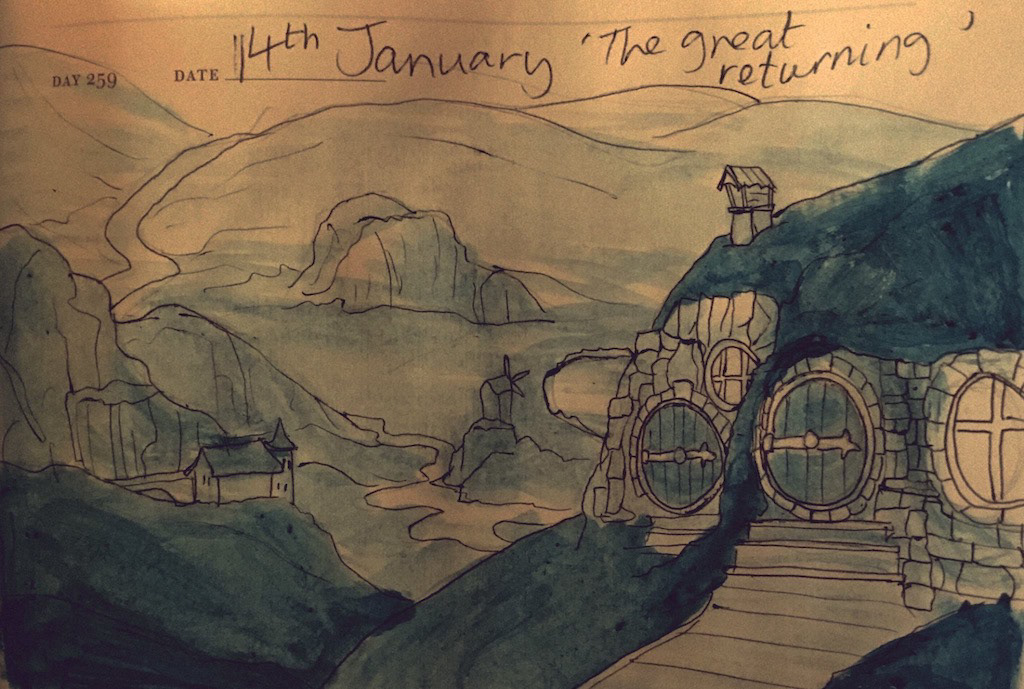 DAY 259 DATE 14th January 'The great
returning'